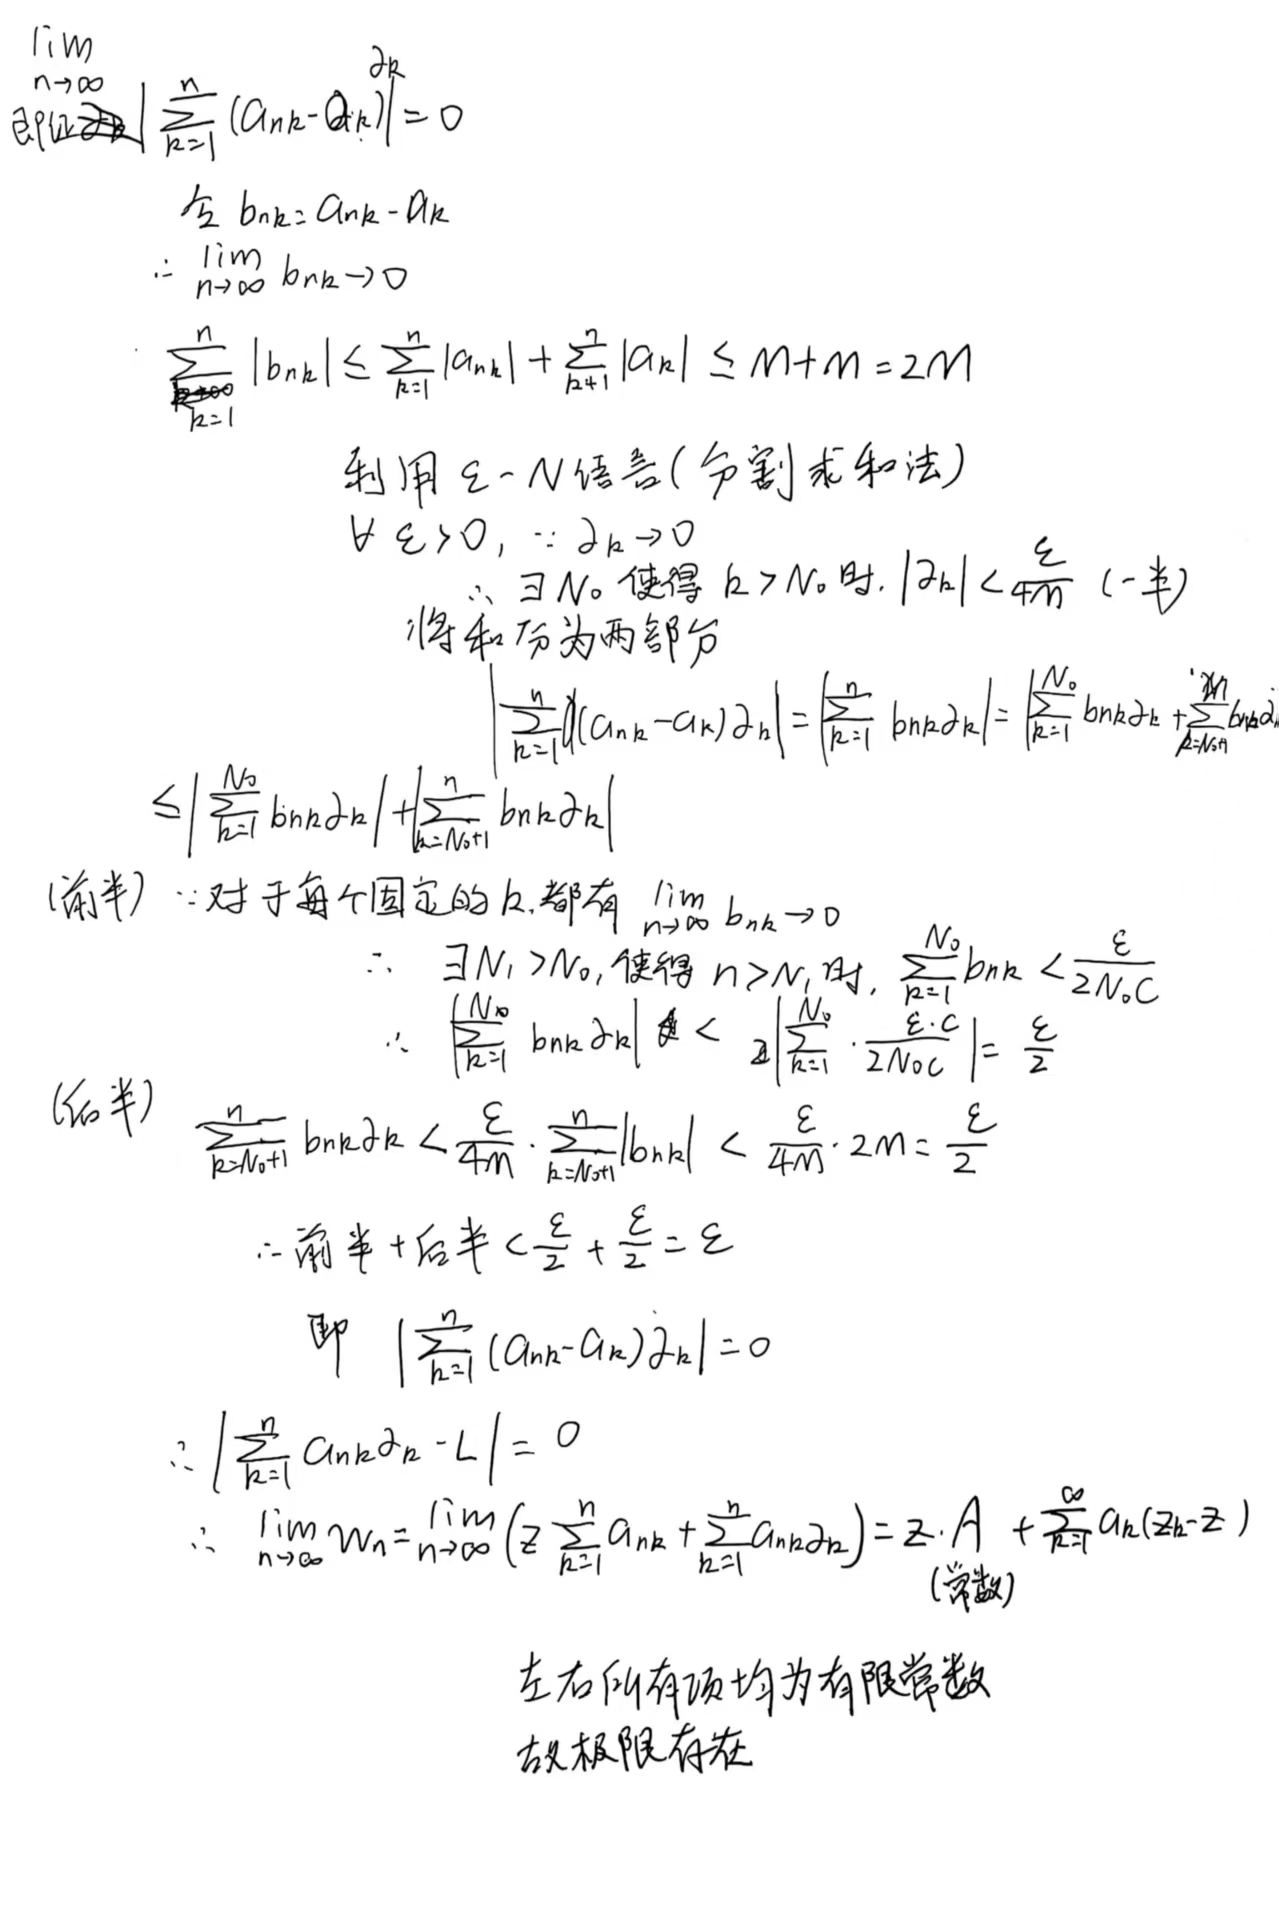 lim
n→∞
即证 | ∑_{k=1}^{n} (a_{nk} - a_k) ∂_k | = 0
令 b_{nk} = a_{nk} - a_k
∴ lim_{n→∞} b_{nk} → 0
∑_{k=1}^{n} |b_{nk}| ≤ ∑_{k=1}^{n} |a_{nk}| + ∑_{k+1}^{n} |a_k| ≤ M + M = 2M
利用 ε - N 语言 (分割求和法)
∀ ε > 0, ∵ ∂_k → 0
∴ ∃ N₀ 使得 k > N₀ 时. |∂_k| < ε/4M (一半)
将和分为两部分
| ∑_{k=1}^{n} ((a_{nk} - a_k) ∂_k | = | ∑_{k=1}^{n} b_{nk} ∂_k | = | ∑_{k=1}^{N₀} b_{nk} ∂_k + ∑_{k=N₀+1}^{n} b_{nk} ∂
≤ | ∑_{k=1}^{N₀} b_{nk} ∂_k | + | ∑_{k=N₀+1}^{n} b_{nk} ∂_k |
(前半) ∵ 对于每个固定的 k, 都有 lim_{n→∞} b_{nk} → 0
∴ ∃ N₁ > N₀, 使得 n > N₁ 时, ∑_{k=1}^{N₀} b_{nk} < ε/2N₀C
∴ | ∑_{k=1}^{N₀} b_{nk} ∂_k | < | ∑_{k=1}^{N₀} · ε·C/2N₀C | = ε/2
(后半) ∑_{k=N₀+1}^{n} b_{nk} ∂_k < ε/4M · ∑_{k=N₀+1}^{n} |b_{nk}| < ε/4M · 2M = ε/2
∴ 前半 + 后半 < ε/2 + ε/2 = ε
即 | ∑_{k=1}^{n} (a_{nk} - a_k) ∂_k | = 0
∴ | ∑_{k=1}^{n} a_{nk} ∂_k - L | = 0
∴ lim_{n→∞} w_n = lim_{n→∞} (z ∑_{k=1}^{n} a_{nk} + ∑_{k=1}^{n} a_{nk} ∂_k) = z·A + ∑_{k=1}^{∞} a_k (z_k - z)
(常数)
左右所有项均为有限常数
故极限存在